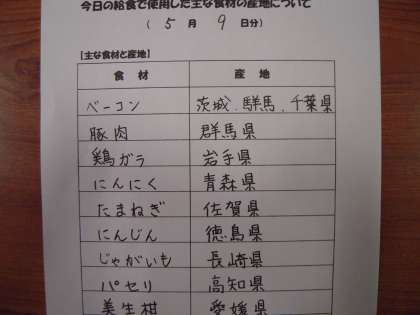 今日の給食で使用した主な食材の産地について
( 5 月 9 日分)
[主な食材と産地]
食 材 産 地
ベーコン 茨城、群馬、千葉県
豚肉 群馬県
鶏ガラ 岩手県
にんにく 青森県
たまねぎ 佐賀県
にんじん 徳島県
じゃがいも 長崎県
パセリ 高知県
美生柑 愛媛県